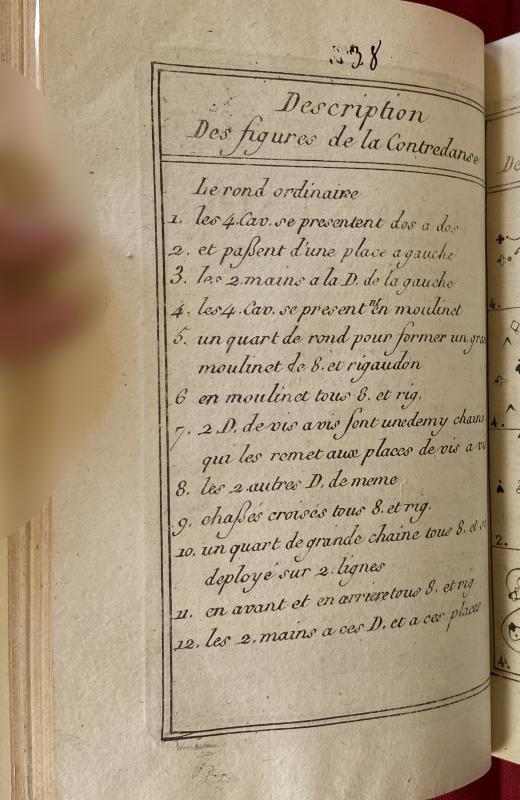 38
Description
Des figures de la Contredanse
Le rond ordinaire
1. les 4. Cav. se presentent dos a dos
2. et paßent d'une place a gauche
3. les 2. mains a la D. de la gauche
4. les 4. Cav. se present.nt en moulinet
5. un quart de rond pour former un
moulinet de 8. et rigaudon
6 en moulinet tous 8. et rig.
7. 2 D. de vis a vis font une demy
qui les romet aux places de vis a
8. les 2 autres D. de meme
9. chaßés croisés tous 8. et rig.
10. un quart de grande chaine tous 8. et
deployé sur 2. lignes
11. en avant et en arriere tous 8. et rig
12. les 2. mains a ces D. et a ces places
De
4.
4.
2.
4.